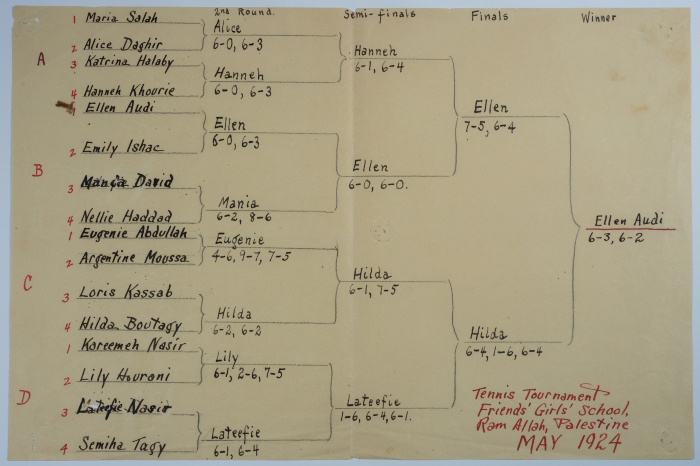 2nd Round. Semi-finals Finals Winner
A
1 Maria Salah
2 Alice Daghir
3 Katrina Halaby
4 Hanneh Khourie
B
1 Ellen Audi
2 Emily Ishac
3 Mania David
4 Nellie Haddad
C
1 Eugenie Abdullah
2 Argentine Moussa
3 Loris Kassab
4 Hilda Boutagy
D
1 Kareemeh Nasir
2 Lily Hourani
3 Lateefie Nasir
4 Semiha Tagy
Alice
6-0, 6-3
Hanneh
6-0, 6-3
Ellen
6-0, 6-3
Mania
6-2, 8-6
Eugenie
4-6, 9-7, 7-5
Hilda
6-2, 6-2
Lily
6-1, 2-6, 7-5
Lateefie
6-1, 6-4
Hanneh
6-1, 6-4
Ellen
6-0, 6-0.
Hilda
6-1, 7-5
Lateefie
1-6, 6-4, 6-1.
Ellen
7-5, 6-4
Hilda
6-4, 1-6, 6-4
Ellen Audi
6-3, 6-2
Tennis Tournament
Friends' Girls' School,
Ram Allah, Palestine
MAY 1924